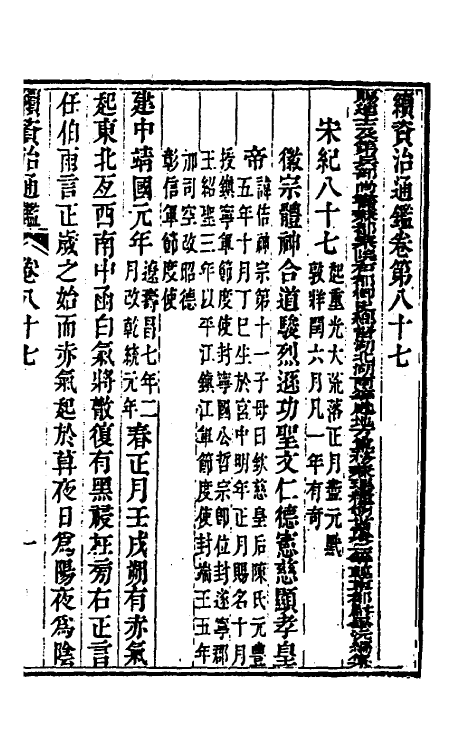 續資治通鑑卷第八十七
宋紀八十七起重光大荒落正月盡元黓
敦牂閏六月凡一年有奇
徽宗體神合道駿烈遜功聖文仁德憲慈顯孝皇
帝諱佶神宗第十一子母曰欽慈皇后陳氏元豐
五年十月丁巳生於宮中明年正月賜名十月
授鎮寧軍節度使封寧國公哲宗即位封遂寧郡
王紹聖三年以平江鎮江軍節度使封端王五年
加司空改昭德
彰信軍節度使
建中靖國元年遼壽昌七年二
月改乾統元年春正月壬戌朔有赤氣
起東北亙西南中函白氣將散復有黑祲在旁右正言
任伯雨言正歲之始而赤氣起於暮夜日爲陽夜爲陰
續資治通鑑 卷八十七 一